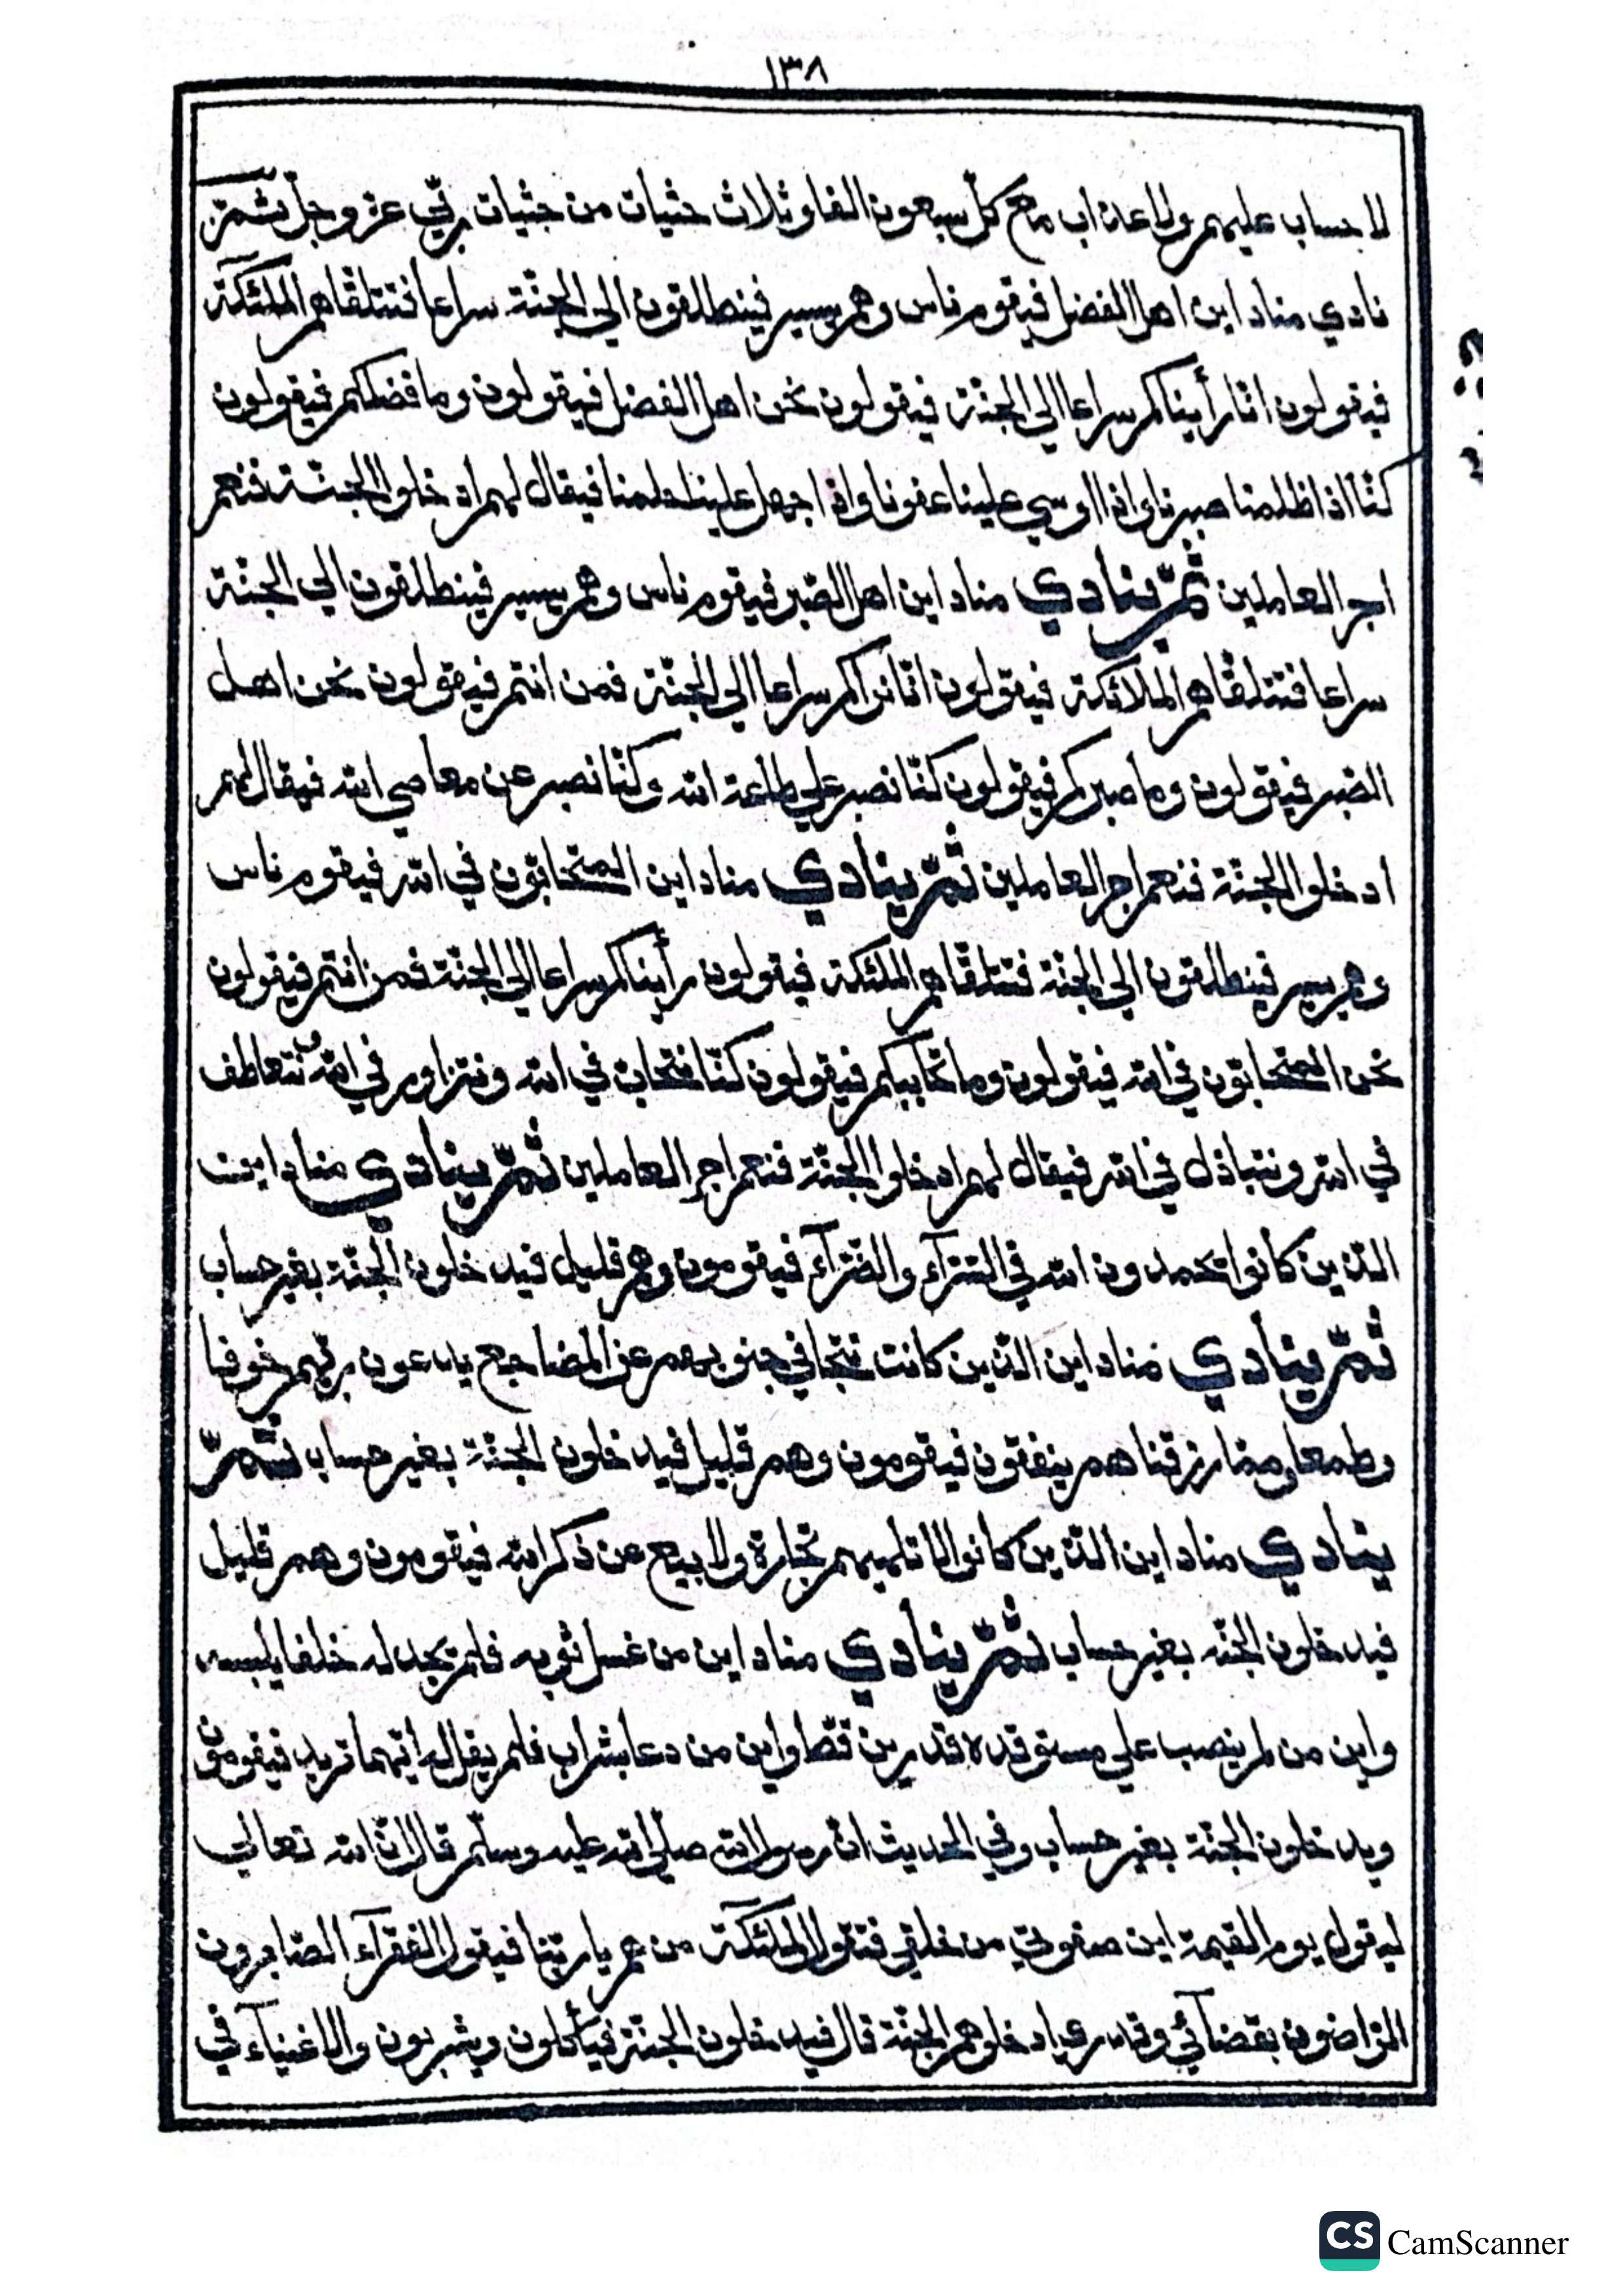 ١٣٨
لا حساب عليهم ولا عذاب مع كلّ سبعون الفا وثلاث حثيات من حثيات ربّي عزّ وجلّ ثمّ
نادي مناد اين اهل الفضل فيقوم ناس وهم يسير فينطلقون الي الجنّة سراعا فتتلقّاهم الملئكة
فيقولون انّا رأيناكم سراعا الي الجنّة فيقولون نحن اهل الفضل فيقولون وما فضلكم فيقولون
كنّا اذا ظلمنا صبرنا واذا اوسي علينا عفونا واذا جهل علينا حلمنا فيقال لهم ادخلوا الجنّة فنعم
اجر العاملين ثمّ ينادي مناد اين اهل الصّبر فيقوم ناس وهم يسير فينطلقون الي الجنّة
سراعا فتتلقّاهم الملائكة فيقولون انّا نراكم سراعا الي الجنّة فمن انتم فيقولون نحن اهل
الصّبر فيقولون وما صبركم فيقولون كنّا نصبر علي طاعة الله وكنّا نصبر عن معاصي الله فيقال لهم
ادخلوا الجنّة فنعم اجر العاملين ثمّ ينادي مناد اين المتحابّون في الله فيقوم ناس
وهم يسير فينطلقون الي الجنّة فتتلقّاهم الملئكة فيقولون رأيناكم سراعا الي الجنّة فمن انتم فيقولون
نحن المتحابّون في الله فيقولون وما تحاببكم فيقولون كنّا نتحابّ في الله ونتزاور في الله ونتعاطف
في الله ونتباذل في الله فيقال لهم ادخلوا الجنّة فنعم اجر العاملين ثمّ ينادي مناد اين
الّذين كانوا يحمدون الله في السّرّآء والضّرّآء فيقومون وهم قليل فيدخلون الجنّة بغير حساب
ثمّ ينادي مناد اين الّذين كانت تتجافي جنوبهم عن المضاجع يدعون ربّهم خوفا
وطمعا وممّا رزقناهم ينفقون فيقومون وهم قليل فيدخلون الجنّة بغير حساب ثمّ
ينادي مناد اين الّذين كانوا لا تلهيهم تجارة ولا بيع عن ذكر الله فيقومون وهم قليل
فيدخلون الجنّه بغير حساب ثمّ ينادي مناد اين من غسل ثوبه فلم يجد له خلفا يلبسه
واين من لم ينصب علي مستوقده قدرين قطّ واين من دعا بشراب فلم يقل له ايّهما تريد فيقومون
ويدخلون الجنّة بغير حساب وفي الحديث انّ رسول الله صلّي الله عليه وسلّم قال انّ الله تعالي
ليقول يوم القيمة اين صفوتي من خلقي فتقول الملئكة من هم يا ربّنا فيقول الفقرآء الصّابرون
الرّاضون بقضآئي وقدري ادخلوهم الجنّة قال فيدخلون الجنّة فيأكلون ويشربون والاغنيآء في
CS CamScanner